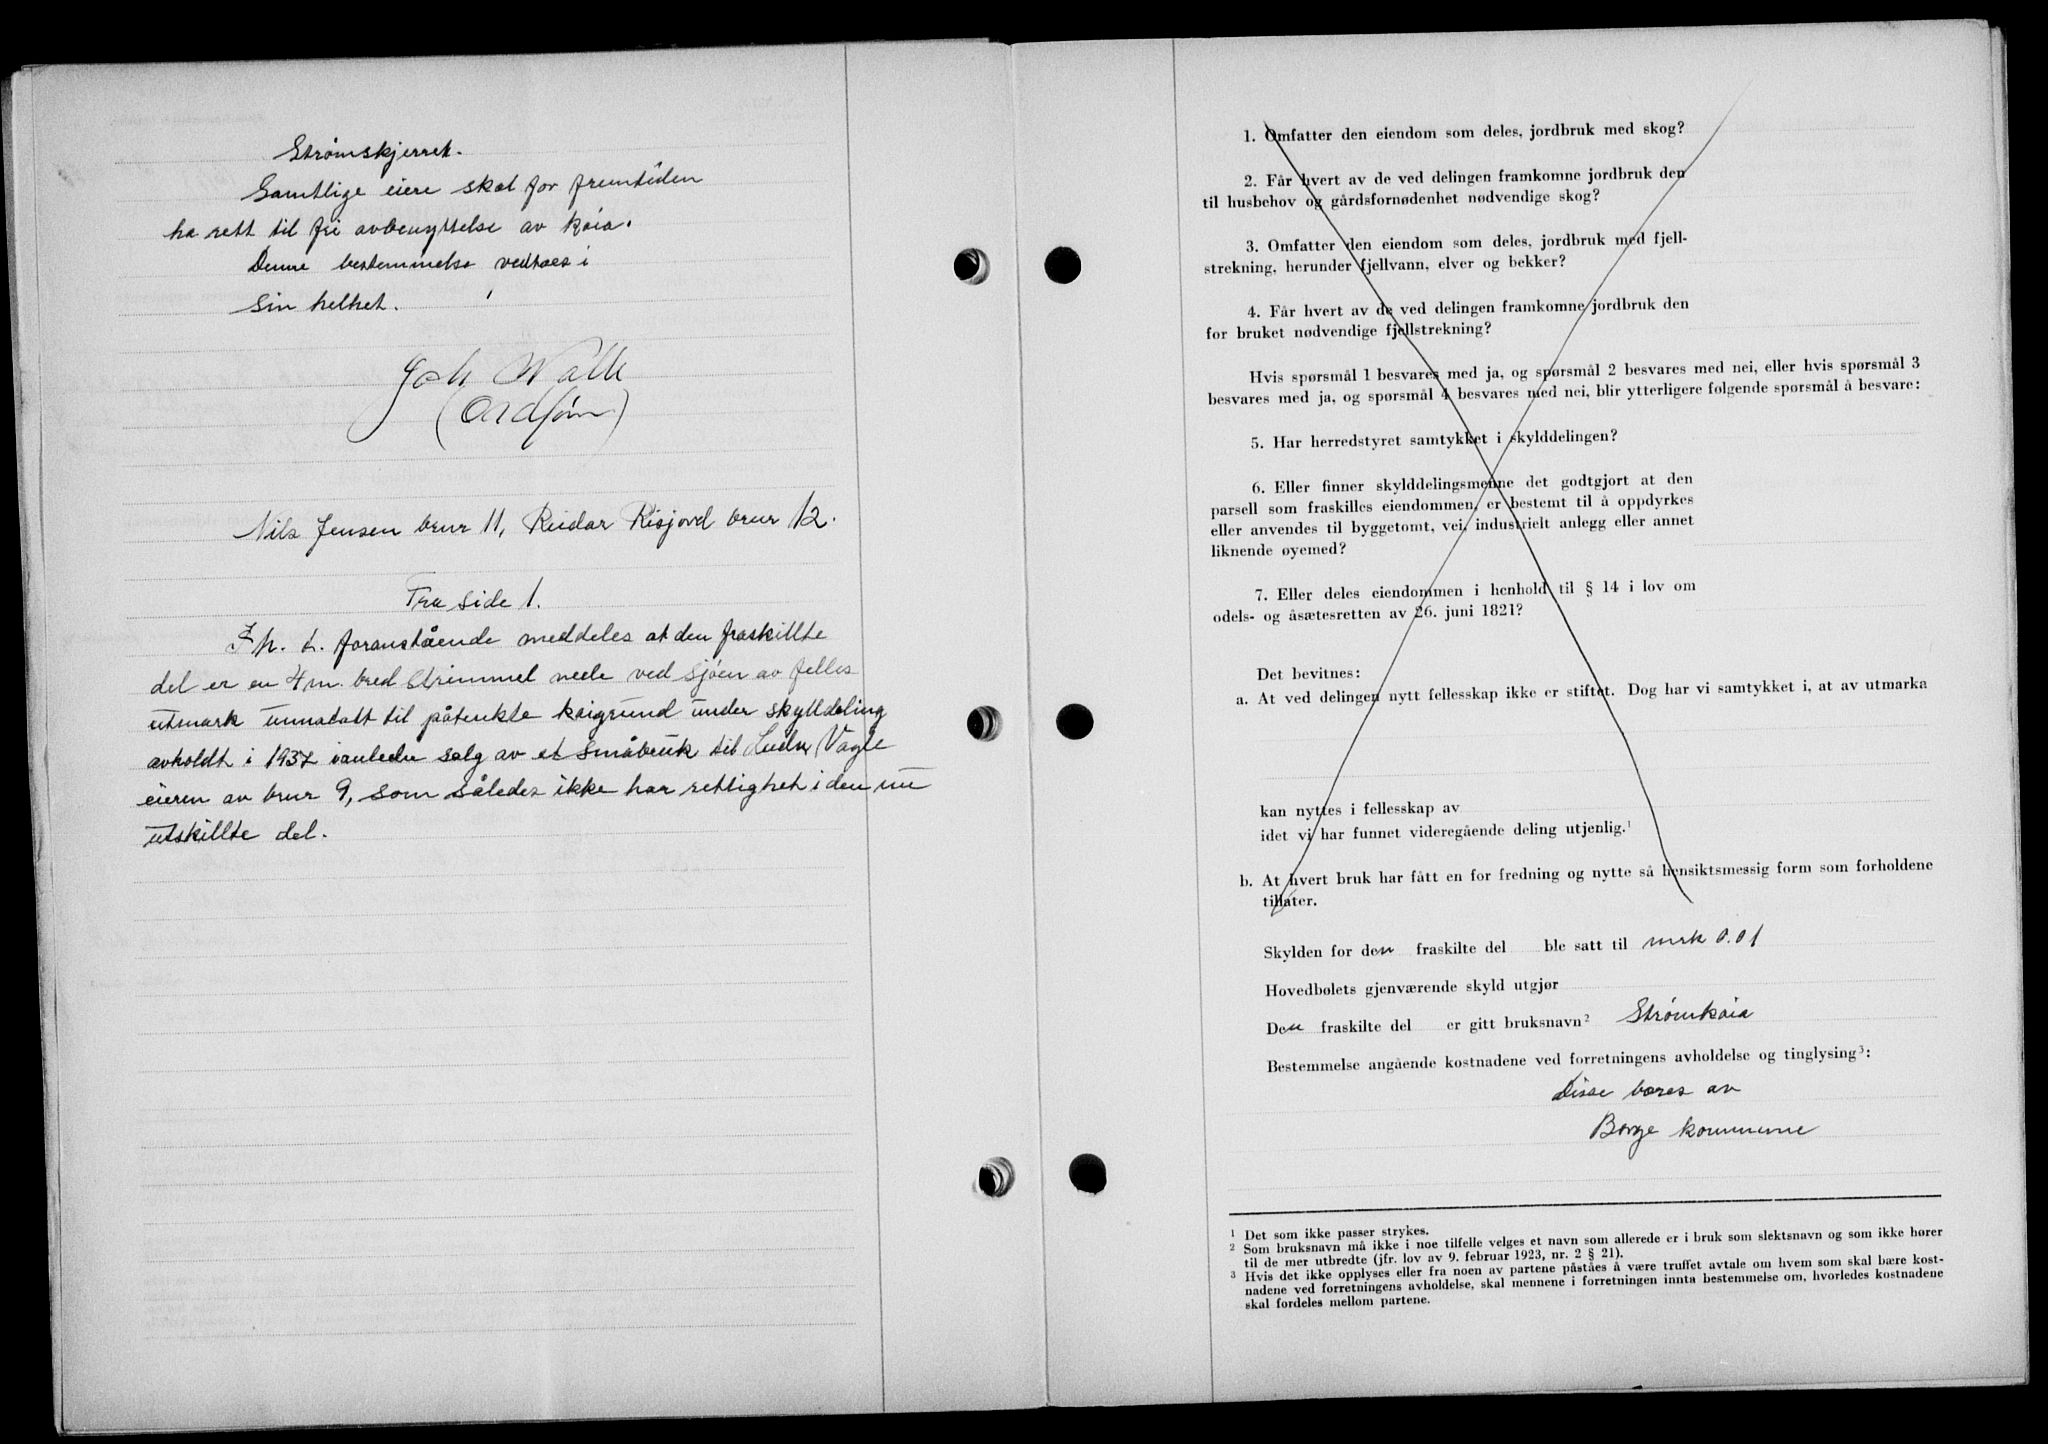 Strømskjerret.
Samtlige eiere skal for fremtiden
ha rett til fri avbenyttelse av kaia.
Denne bestemmelse vedtaes i
sin helhet.
Joh Walle
(Ordfører)
Nils Jensen brnr 11, Reidar Risjord brnr 12.
Fra side 1.
I h. t. foranstående meddeles at den fraskillte
del er en 4 m. bred strimmel nede ved sjøen av felles
utmark unnatatt til påtenkte kaigrund under skylldeling
avholdt i 1937 i anledn salg av et småbruk til Vagle
eieren av brnr 9, som således ikke har rettighet i den nu
utskillte del.
1. Omfatter den eiendom som deles, jordbruk med skog?
2. Får hvert av de ved delingen framkomne jordbruk den
til husbehov og gårdsfornødenhet nødvendige skog?
3. Omfatter den eiendom som deles, jordbruk med fjell-
strekning, herunder fjellvann, elver og bekker?
4. Får hvert av de ved delingen framkomne jordbruk den
for bruket nødvendige fjellstrekning?
Hvis spørsmål 1 besvares med ja, og spørsmål 2 besvares med nei, eller hvis spørsmål 3
besvares med ja, og spørsmål 4 besvares med nei, blir ytterligere følgende spørsmål å besvare:
5. Har herredstyret samtykket i skylddelingen?
6. Eller finner skylddelingsmennene det godtgjort at den
parsell som fraskilles eiendommen, er bestemt til å oppdyrkes
eller anvendes til byggetomt, vei, industrielt anlegg eller annet
liknende øyemed?
7. Eller deles eiendommen i henhold til § 14 i lov om
odels- og åsætesretten av 26. juni 1821?
Det bevitnes:
a. At ved delingen nytt fellesskap ikke er stiftet. Dog har vi samtykket i, at av utmarka
kan nyttes i fellesskap av
idet vi har funnet videregående deling utjenlig.¹
b. At hvert bruk har fått en for fredning og nytte så hensiktsmessig form som forholdene
tillater.
Skylden for den fraskilte del ble satt til mrk 0.01
Hovedbølets gjenværende skyld utgjør
Den fraskilte del er gitt bruksnavn² Strømkaia
Bestemmelse angående kostnadene ved forretningens avholdelse og tinglysing³:
Disse bæres av
Borge kommune
¹ Det som ikke passer strykes.
² Som bruksnavn må ikke i noe tilfelle velges et navn som allerede er i bruk som slektsnavn og som ikke hører
til de mer utbredte (jfr. lov av 9. februar 1923, nr. 2 § 21).
³ Hvis det ikke opplyses eller fra noen av partene påståes å være truffet avtale om hvem som skal bære kost-
nadene ved forretningens avholdelse, skal mennene i forretningen innta bestemmelse om, hvorledes kostnadene
skal fordeles mellom partene.